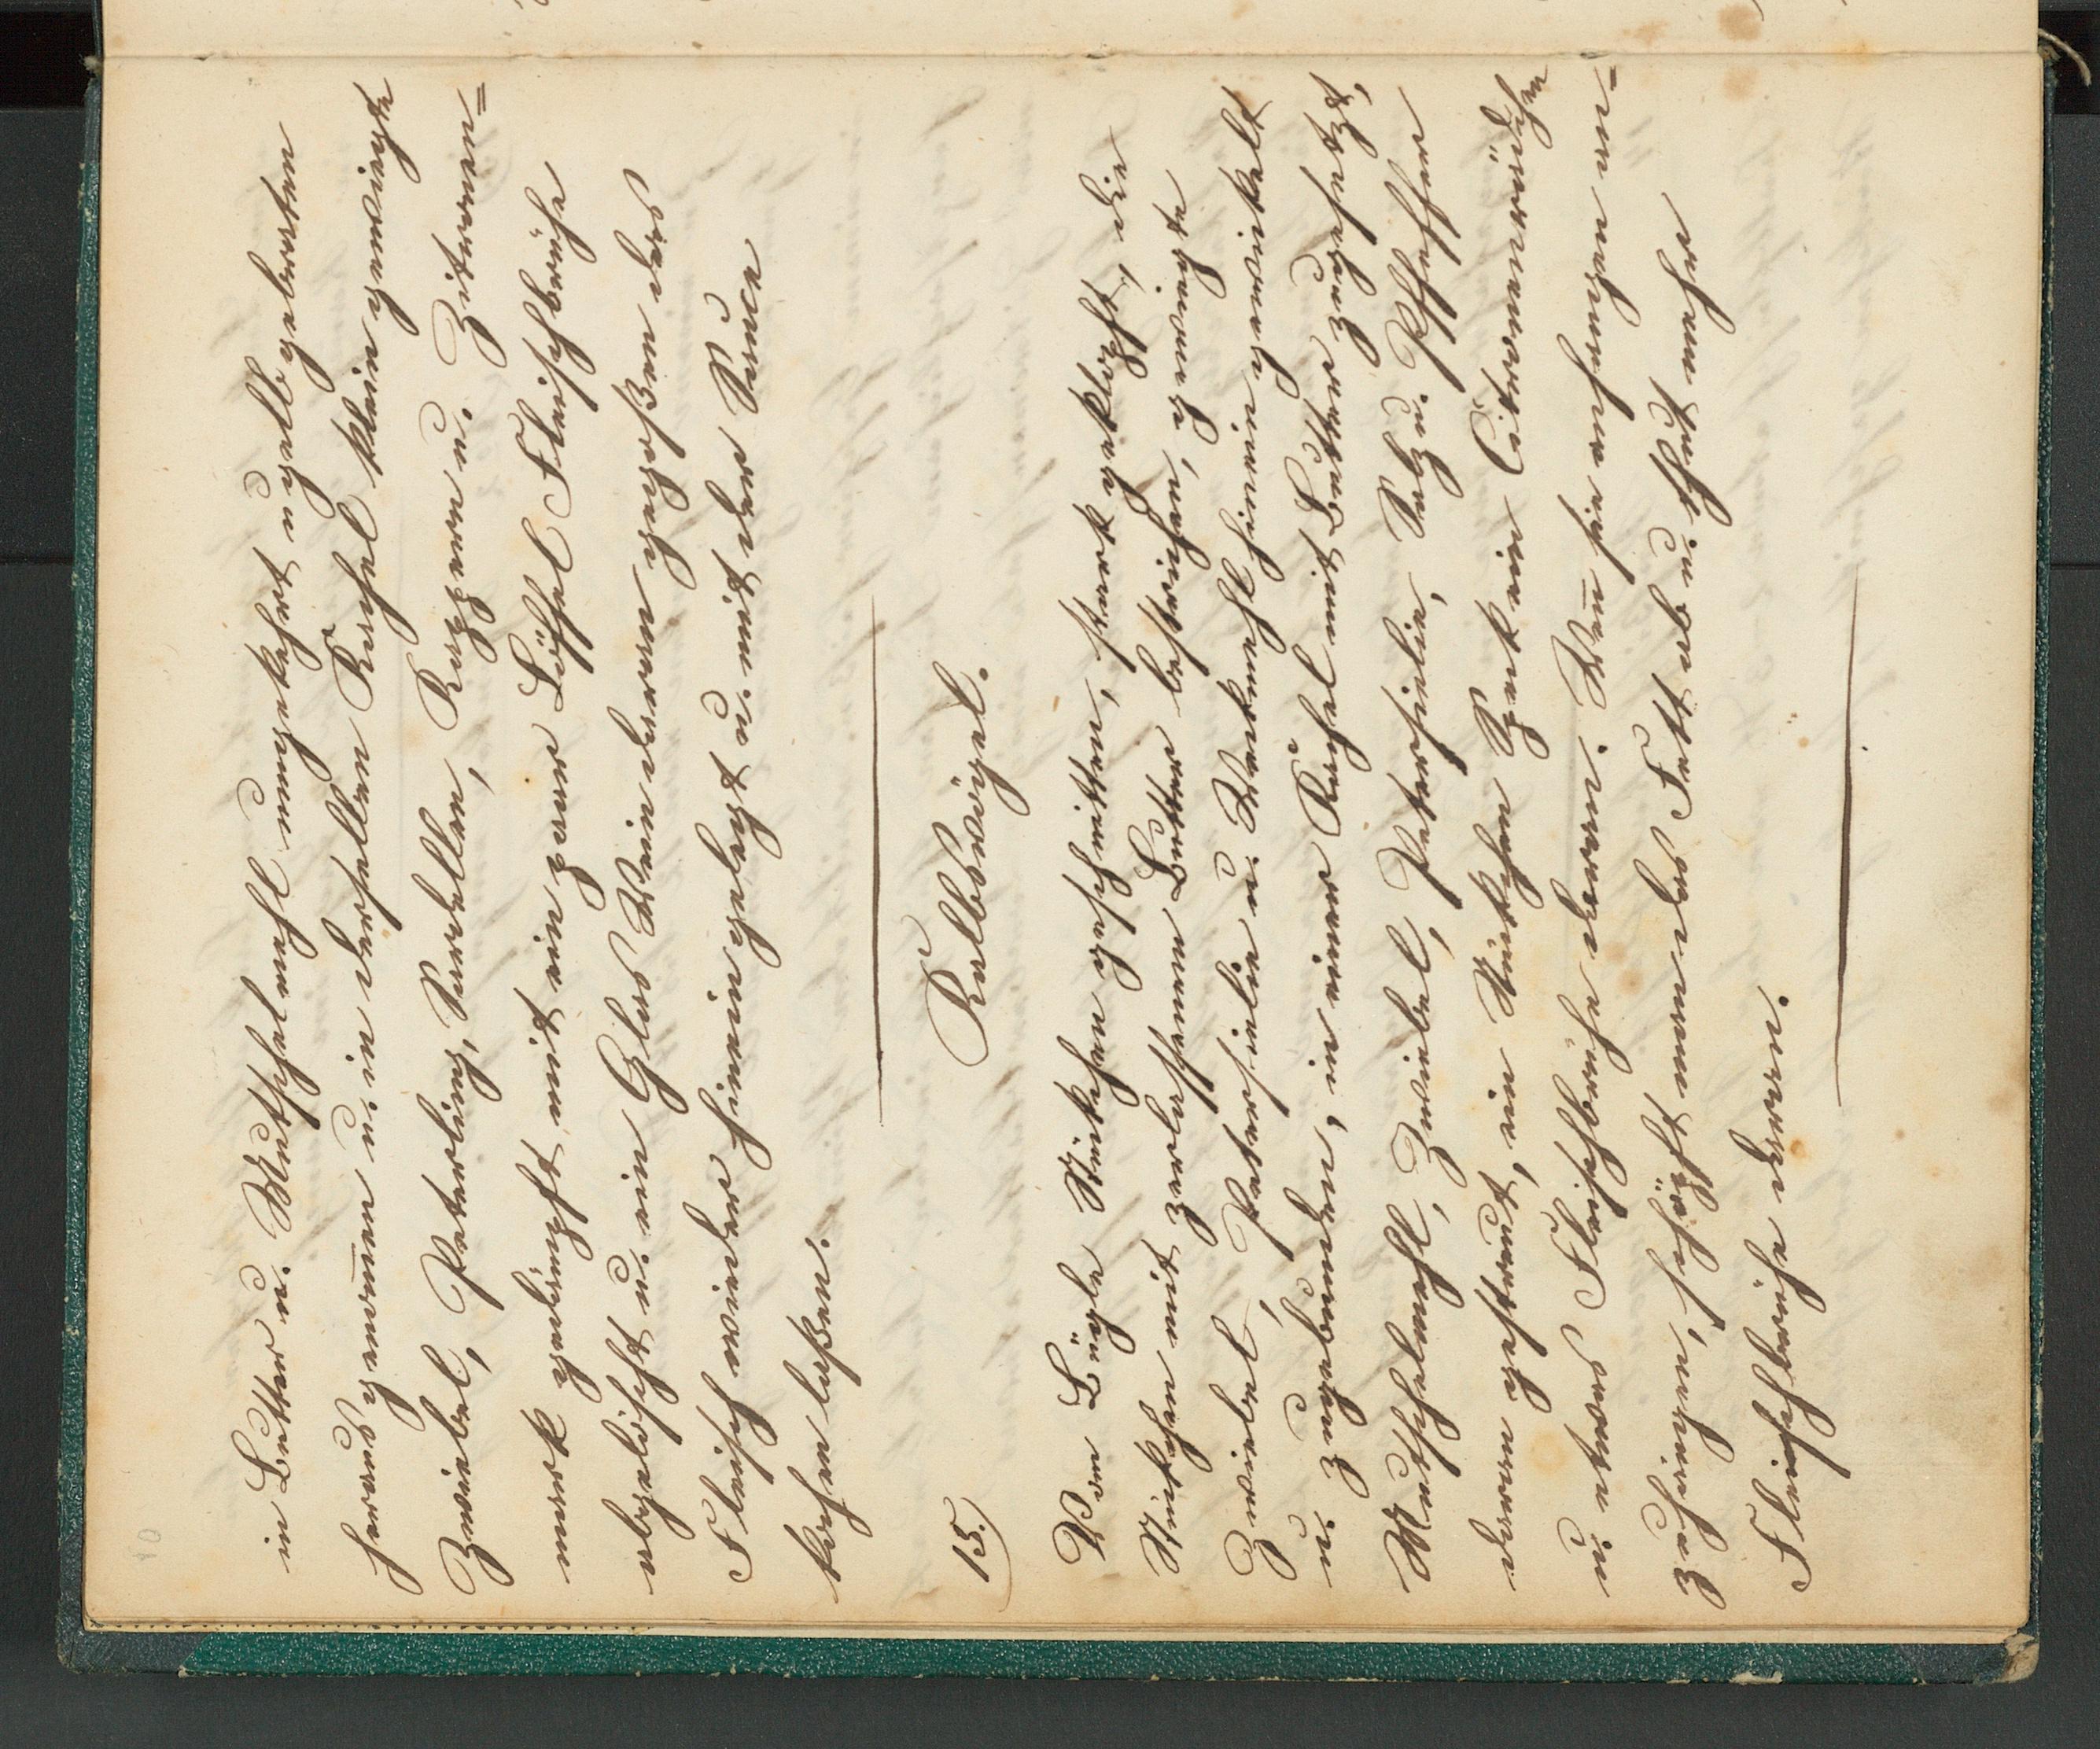 in Butter u. Mutschelmehl umgekehrt u gelb gebraten
herausgenom̄en u. in derselben Kachel klein gewiegte
Zwiebel, Peterling, Sardellen, Kappern u. Zitronen=
mark gedämpft mit ein paar Löffel Fleischbrühe
abgelöscht u. ein Glas Wein daran gegoßen das
Fleisch wieder hineingelegt u. mit der Sauce
kochen laßen.
15.) Kalbsvögel.
Vom Bügle Stückchen geschnitten, stark geklopft, die
Stückchen mit zerlassenem Butter bestrichen, gewiegte
Zwiebel, Petersielie u. Weckmehl hineingewickelt
u. zugebunden, in einer Kachel mit Butter zugesetzt,
Mutschelmehl, Zwiebel, Petersielie, Salz u. Pfeffer
daran gestreut, ein Stückchen Speck ein Citronenrädchen
u. etwas Fleischbrühe daran. Wen̄ sie anfangen an=
zuhängen, schöpft man das Fett ab u. thut mehr
Fleischbrühe daran.
10